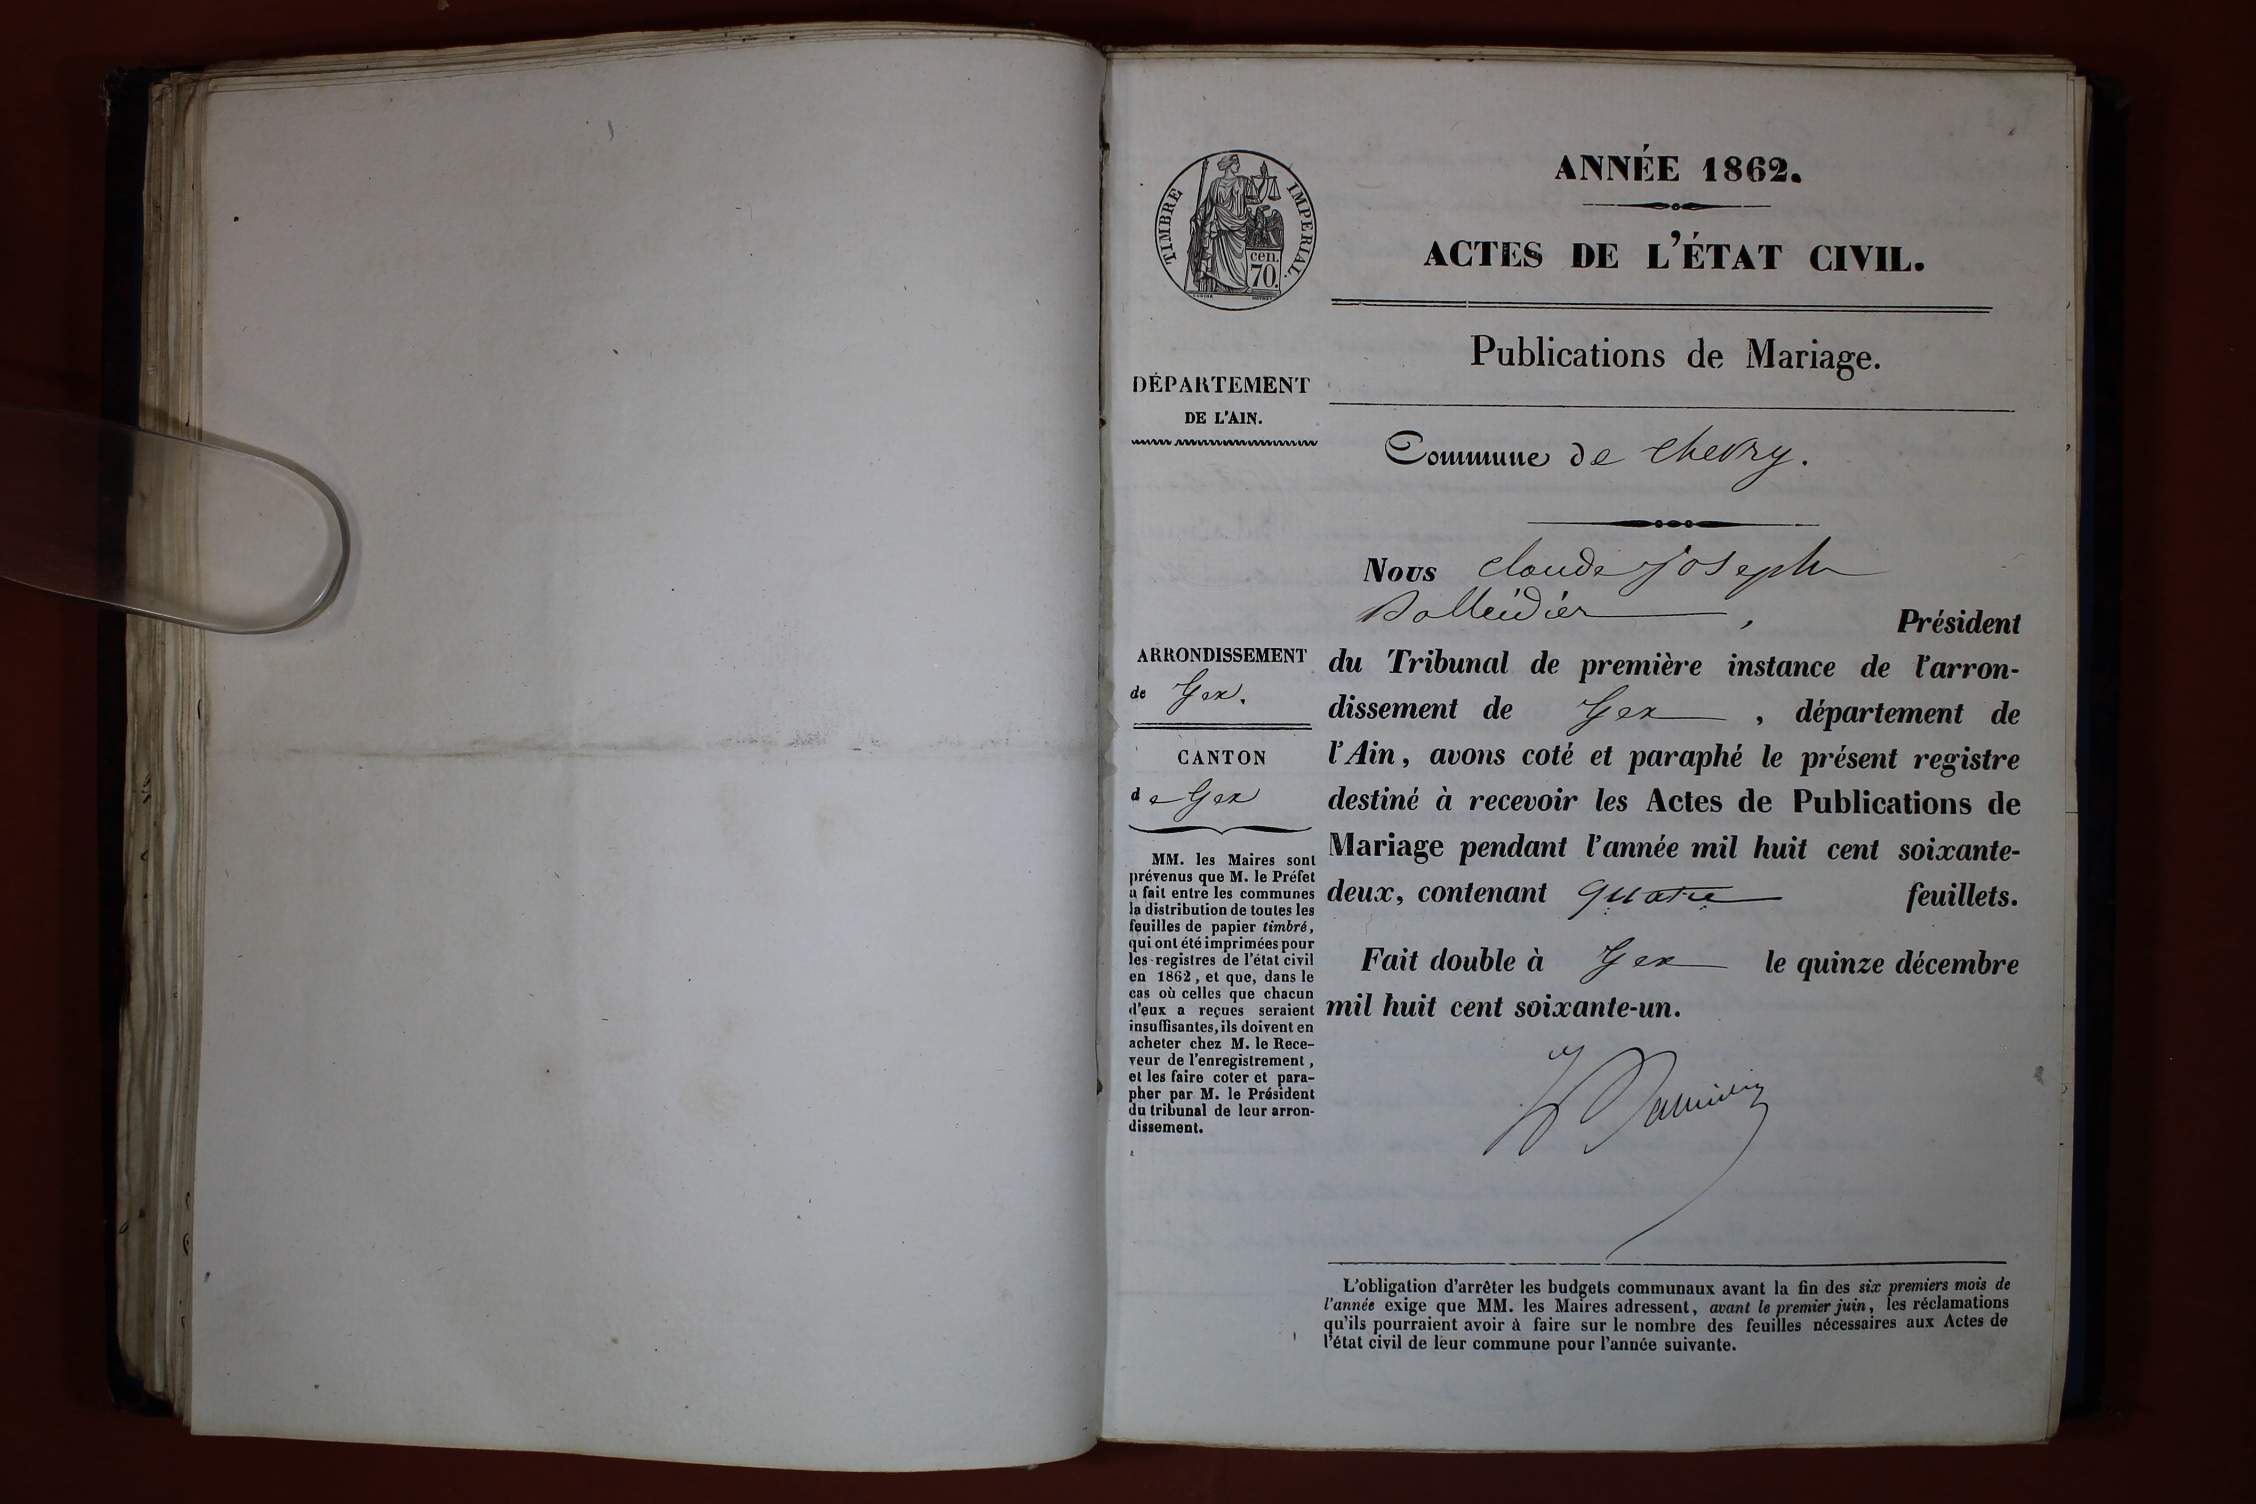 ANNÉE 1862.
ACTES DE L'ÉTAT CIVIL.
TIMBRE IMPERIAL.
cen.
70.
Publications de Mariage.
DÉPARTEMENT
DE L'AIN.
Commune de Chevry.
ARRONDISSEMENT
de Gex.
CANTON
de Gex
MM. les Maires sont
prévenus que M. le Préfet
a fait entre les communes
la distribution de toutes les
feuilles de papier timbré,
qui ont été imprimées pour
les registres de l'état civil
en 1862, et que, dans le
cas où celles que chacun
d'eux a reçues seraient
insuffisantes, ils doivent en
acheter chez M. le Rece-
veur de l'enregistrement,
et les faire coter et para-
pher par M. le Président
du tribunal de leur arron-
dissement.
Nous Claude Joseph
, Président
du Tribunal de première instance de l'arron-
dissement de Gex, département de
l'Ain, avons coté et paraphé le présent registre
destiné à recevoir les Actes de Publications de
Mariage pendant l'année mil huit cent soixante-
deux, contenant quatre feuillets.
Fait double à Gex le quinze décembre
mil huit cent soixante-un.
L'obligation d'arrêter les budgets communaux avant la fin des six premiers mois de
l'année exige que MM. les Maires adressent, avant le premier juin, les réclamations
qu'ils pourraient avoir à faire sur le nombre des feuilles nécessaires aux Actes de
l'état civil de leur commune pour l'année suivante.